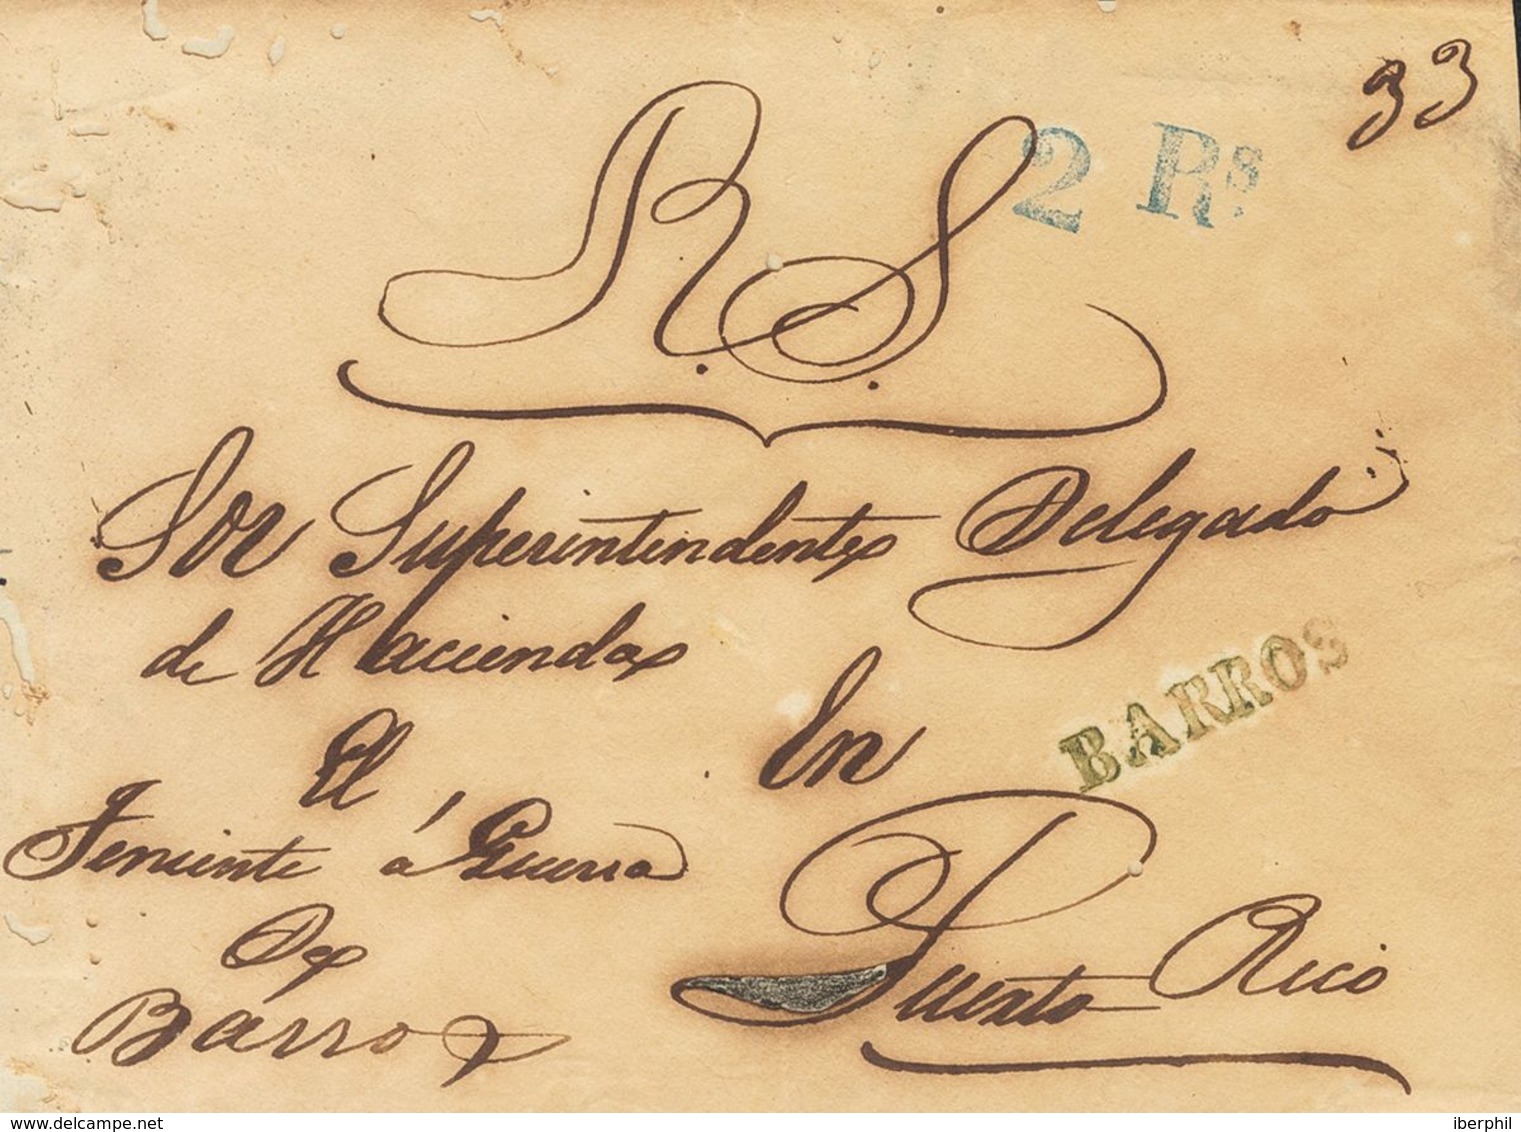 33
2 Rs.
R. S.
Sor Superintendente Delegado
de Hacienda
En
BARROS
El
Teniente á Guerra
De
Barros
Puerto Rico
www.delcampe.net
iberphil